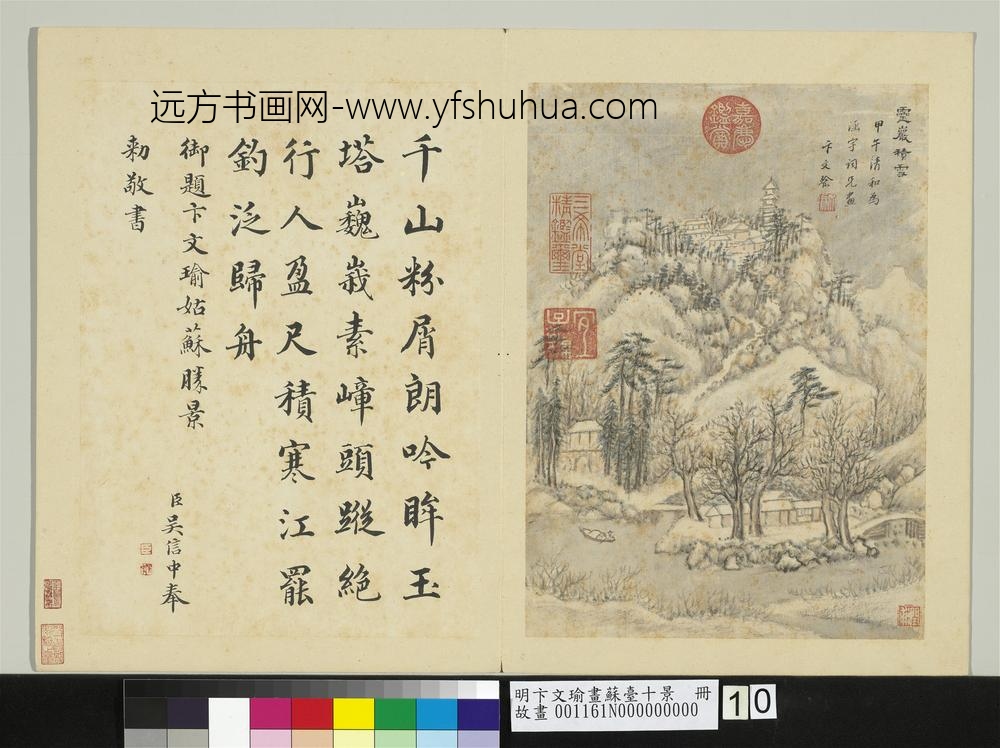 远方书画网-www.yfshuhua.com
靈巖積雪
甲午清和為
涵宇詞兄畫
卞文瑜
嘉慶鑑賞
三希堂精鑑璽
宜子孫
千山粉屑朗吟眸玉
塔巍峩素嶂頭蹤絕
行人盈尺積寒江罷
釣泛歸舟
御題卞文瑜姑蘇勝景
臣吳信中奉
勅敬書
明卞文瑜畫蘇臺十景 冊
故畫 001161N000000000
10